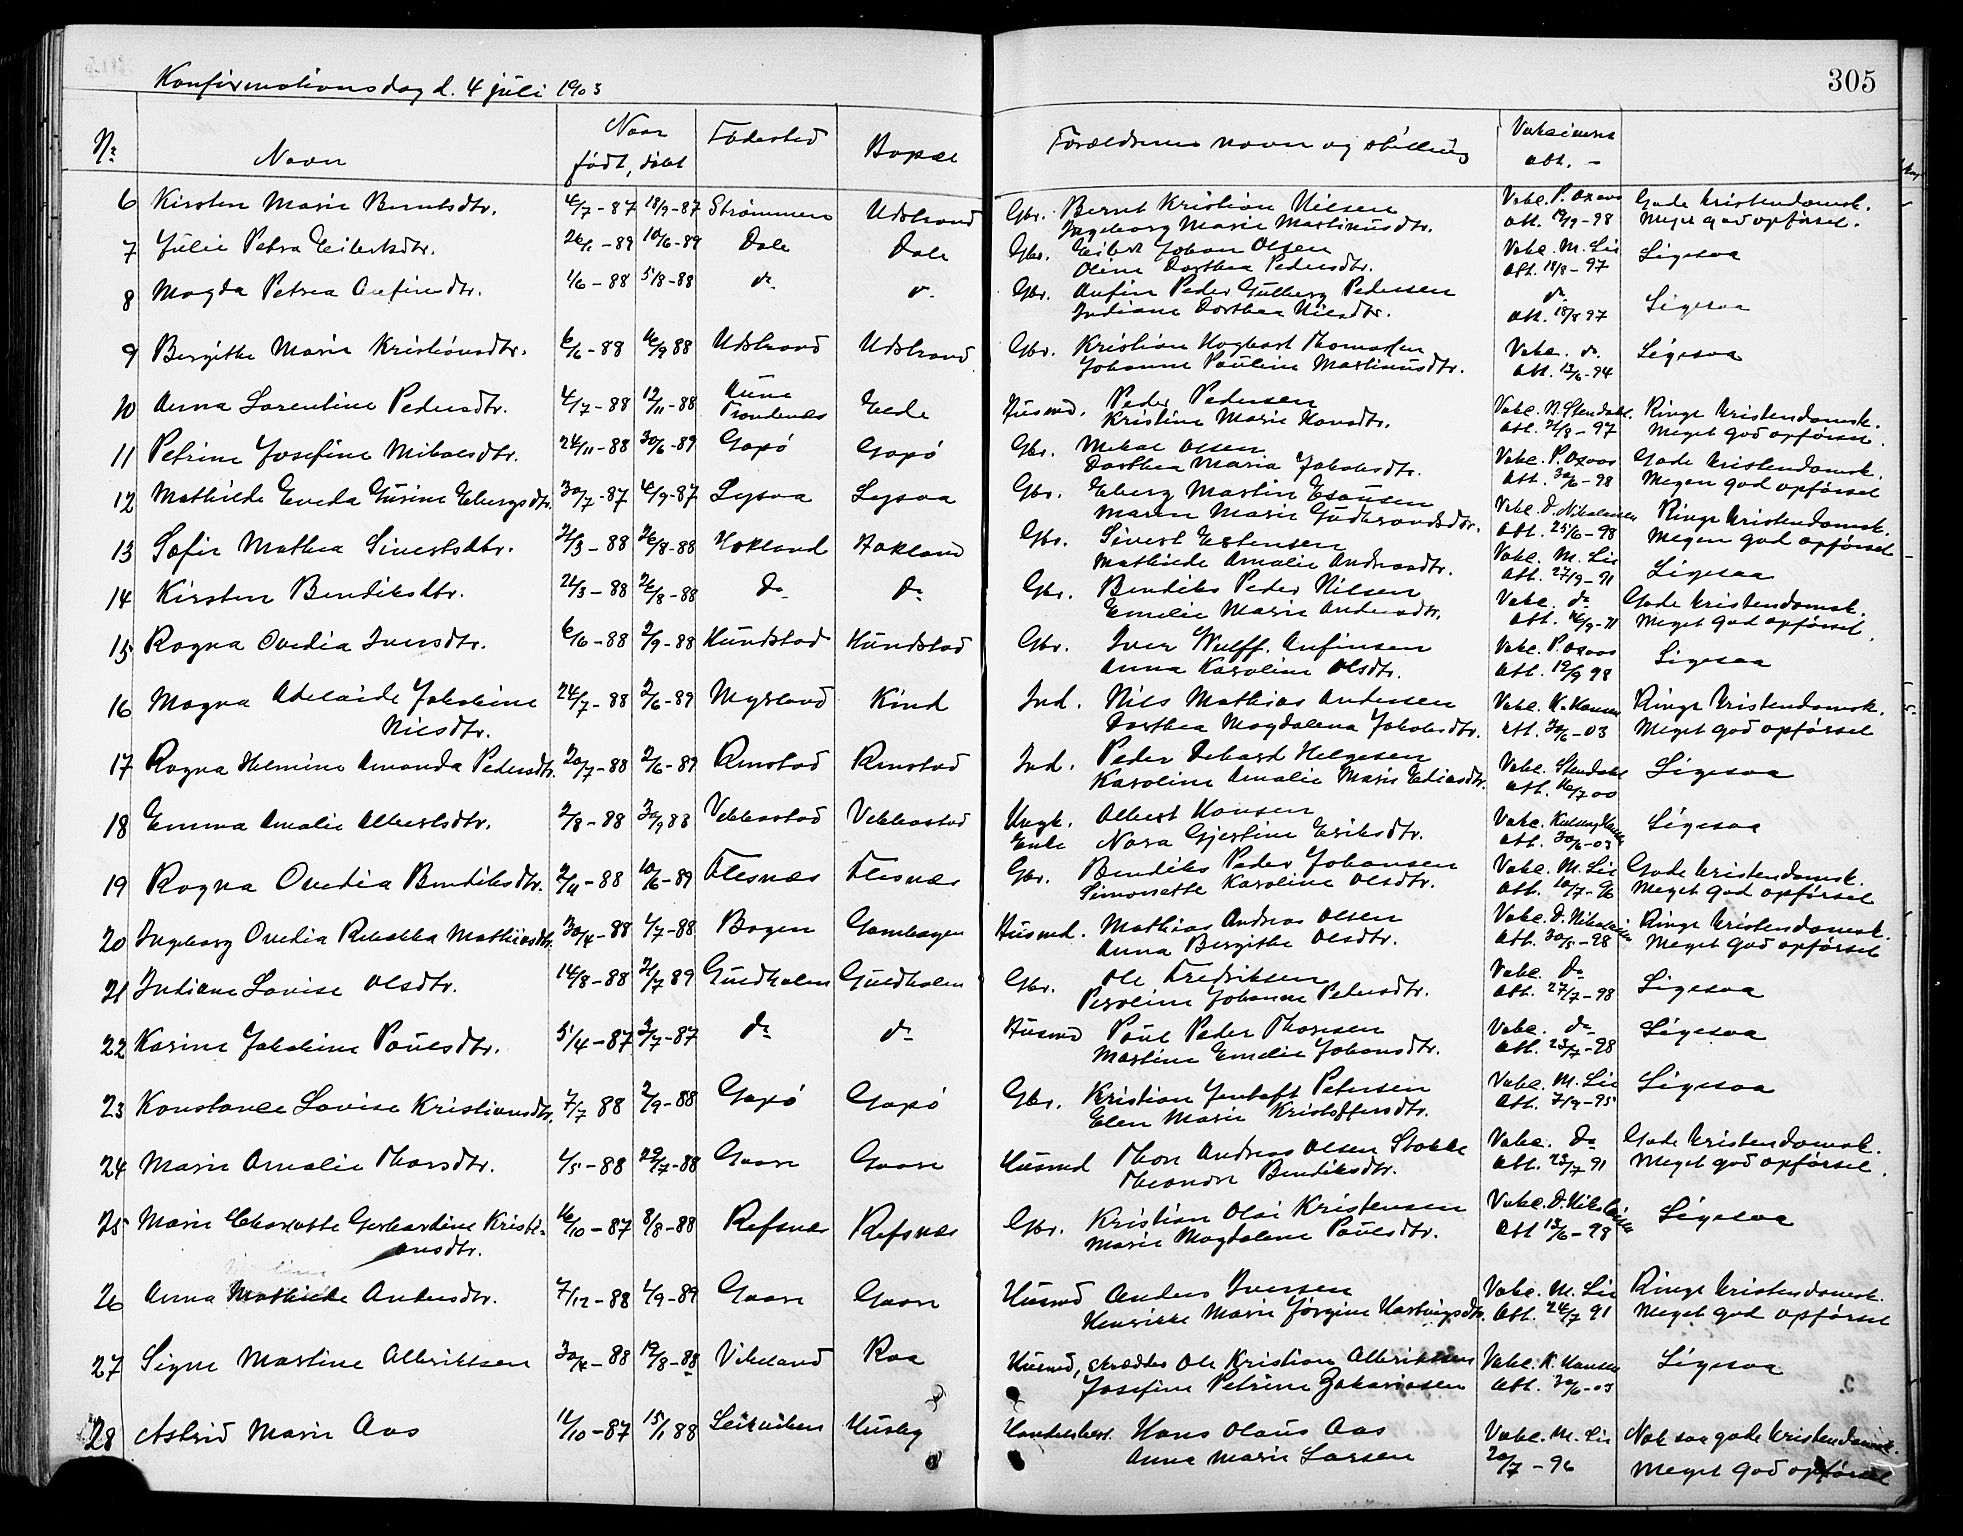 Konfirmationsdag d. 4 juli 1903
305
Nr. Navn Naar født, døbt Fødested Bopæl Forældrenes navn og stilling Vaksinera att.
6 Kirsten Marie Berntsdtr. 4/7-87 18/9-87 Strømmen Udstrand Gbr. Bernt Kristian Nilsen Vakc. P. Oxaas Gode kristendomsk.
Ingeborg Marie Martinusdtr. att. 19/9-98 Meget god opførsel.
7 Julie Petra Eilertsdtr. 26/1-89 10/6-89 Dale Dale Gbr. Eilert Johan Olsen Vakc. M. Lie Ligesaa
Oline Dorthea Pedersdtr. att. 18/8-97
8 Magda Petrea Anfinsdtr. 1/6-88 5/8-88 do do Gbr. Anfin Peder Gulberg Pedersen do Ligesaa
Indiane Dorthea Nilsdtr. att. 18/8 97
9 Bergithe Marie Kristiansdtr. 6/6-88 16/9 88 Udstrand Udstrand Gbr. Kristian Hogbart Thomassen Vakc. do Ligesaa
Johanne Pauline Martinusdtr. att. 12/6-94
10 Anna Larentine Pedersdtr. 4/7-88 12/11-88 Aune Trondenes Elde Husmd. Peder Pedersen Vakc. N. Stendahl. Ringe kristendomsk.
Kristine Marie Hansdtr. att. 21/8-97 Meget god opførsel.
11 Petrine Josefine Mikalsdtr. 24/11-88 30/6-89 Gapø Gapø Gbr. Mekal Olsen Vakc. P. Oxaas Gode kristendomsk.
Dorthea Maria Jakobsdtr. att. 30/6-98 Megen god opførsel
12 Mathilde Eveda Gusine Ebergsdtr. 30/7-87 4/9-87 Lysvaa Lysvaa Gbr. Eberg Martin Esausen Vakc. D. Nikolaisen Ringe kristendomsk.
Maren Marie Gudbrandsdtr. att. 25/6-98 Megen god opførsel
13 Sofie Mathea Sivertsdtr. 21/3-88 26/8-88 Hokland Hokland Gbr. Sivert Estensen Vakc. M. Lie Ligesaa
Mathilde Amalie Andreasdtr. att. 27/9-91
14 Kirsten Bendiksdtr. 22/3-88 26/8-88 do do Gbr. Bendiks Peder Nilsen Vakc. do Gode kristendomsk.
Emelie Marie Andersdtr. att. 16/9-91 Meget god opførsel.
15 Ragna Ovedia Iversdtr. 6/6-88 2/9-88 Hundstad Hundstad Gbr. Iver Wulff. Anfinsen Vakc. P. Oxaas Ligesaa
Anna Karoline Olsdtr. att. 19/9 98
16 Magna Adelaide Jakobine 24/7-88 2/6-89 Myrland Kind Ind. Nils Mathias Andersen Vakc. K. Hansen Ringe kristendomsk.
Nilsdtr. Dorthea Magdalena Jakobsdtr. att. 30/6-03 Meget god opførsel
17 Ragna Helmine Amanda Pedersdtr. 20/7-88 2/6-89 Arnstad Arnstad Ind. Peder Dehard Helgesen Vakc. Stendahl Ligesaa
Karoline Amalie Marie Eliasdtr. att. 16/7 00
18 Emma Amalie Albertsdtr. 2/8-88 30/9 88 Vekkastad Vekkastad Ungk. Albert Hansen Vakc. Ligesaa
Enke Nora Gjertine Eriksdtr. att. 30/6-03
19 Ragna Ovedia Bendiksdtr. 2/11-88 10/6-89 Flesnæs Flesnæs Gbr. Bendiks Peder Johansen Vakc. M. Lie Gode kristendomsk.
Simonette Karoline Olsdtr. att. 10/7-96 Meget god opførsel
20 Ingeborg Ovedia Rebekka Mathisdtr. 30/4-88 1/7-88 Bogen Gambogen Husmd. Mathias Andreas Olsen Vakc. D. Nikolaisen Ringe kristendomsk.
Anna Bergithe Olsdtr. att. 30/5-98 Meget god opførsel
21 Indiane Lovise Olsdtr. 14/8-88 21/7 89 Guldholm Guldholm Gbr. Ole Fredriksen Vakc. do Ligesaa
Peroline Johanne Pedersdtr. att. 27/7-98
22 Karine Jakobine Paulsdtr. 5/4-87 3/7-87 do do Husmd Paul Peder Thoresen Vakc. do Ligesaa
Martine Emelie Johansdtr. att. 23/7-98
23 Konstance Lovise Kristiansdtr. 7/7 88 2/9-88 Gapø Gapø Gbr. Kristian Jentoft Petersen Vakc. M. Lie Ligesaa
Elen Marie Kristoffersdtr. att. 7/9-95
24 Marie Amalie Thorsdtr. 1/5-88 29/7-88 Gaare Gaare Husmd Thor Andreas Olsen Stokke Vakc. do Gode kristendomsk.
Theandre Bendiksdtr. att. 23/7 91 Meget god opførsel.
25 Marie Charlotte Gerhardine Kristi- 16/10-87 8/8-88 Refsnes Refsnæs Gbr. Kristian Olai Kristensen Vakc. D. Nikolaisen Ligesaa
ansdtr. Marie Magdalene Paulsdtr. att 13/6-98
26 Anna Mathilde Andersdtr. 7/12-88 1/9-89 Gaare Gaare Husmd Anders Iversen Vakc. M. Lie Ringe kristendomsk.
Henrikke Marie Jørgine Hartvigsdtr. att. 24/7 91 Meget god opførsel
27 Signe Martine Albriktsen 30/4-88 19/8-88 Vikeland Raa Husmd, skrædder Ole Kristian Albriktsen Vakc. K. Hansen Ligesaa
Josefine Petrine Zakariasen att. 30/6-03
28 Astrid Marie Aas 11/10-87 15/1 88 Leikviken Husby Handelsbest. Hans Olaus Aas Vakc. M. Lie Nok saa gode kristendomsk.
Anna Marie Larsen 20/7-96 Meget god opførsel